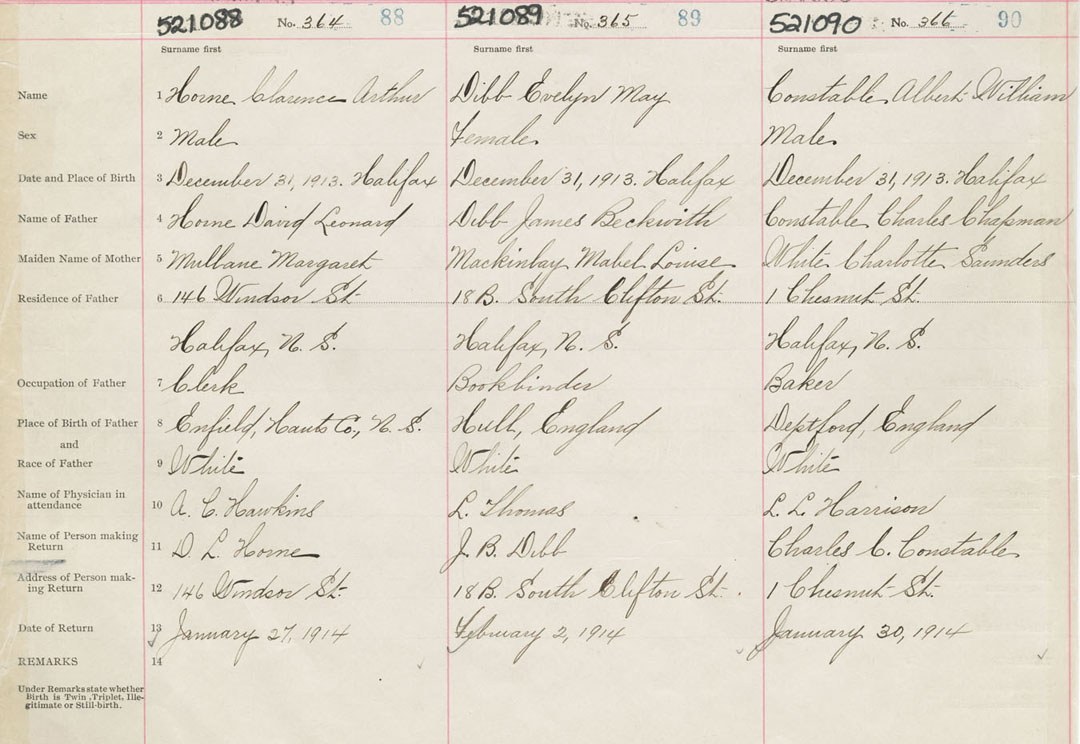 521088 No. 364 88 521089 No. 365 89 521090 No. 366 90
Surname first Surname first Surname first
Name 1 Horne Clarence Arthur Dibb Evelyn May Constable Albert William
Sex 2 Male Female Male
Date and Place of Birth 3 December 31, 1913. Halifax December 31, 1913. Halifax December 31, 1913. Halifax
Name of Father 4 Horne David Leonard Dibb James Beckwith Constable Charles Chapman
Maiden Name of Mother 5 Mullane Margaret Mackinlay Mabel Louise White Charlotte Saunders
Residence of Father 6 146 Windsor St. 18 B. South Clifton St. 1 Chesnut St.
Halifax, N. S. Halifax, N. S. Halifax, N. S.
Occupation of Father 7 Clerk Bookbinder Baker
Place of Birth of Father 8 Enfield, Hants Co., N. S. Hull, England Deptford, England
and
Race of Father 9 White White White
Name of Physician in
attendance 10 A. C. Hawkins L. Thomas L. L. Harrison
Name of Person making
Return 11 D. L. Horne J. B. Dibb Charles C. Constable
Address of Person mak-
ing Return 12 146 Windsor St. 18 B. South Clifton St. 1 Chesnut St.
Date of Return 13 January 27, 1914 February 2, 1914 January 30, 1914
REMARKS 14
Under Remarks state whether
Birth is Twin, Triplet, Ille-
gitimate or Still-birth.